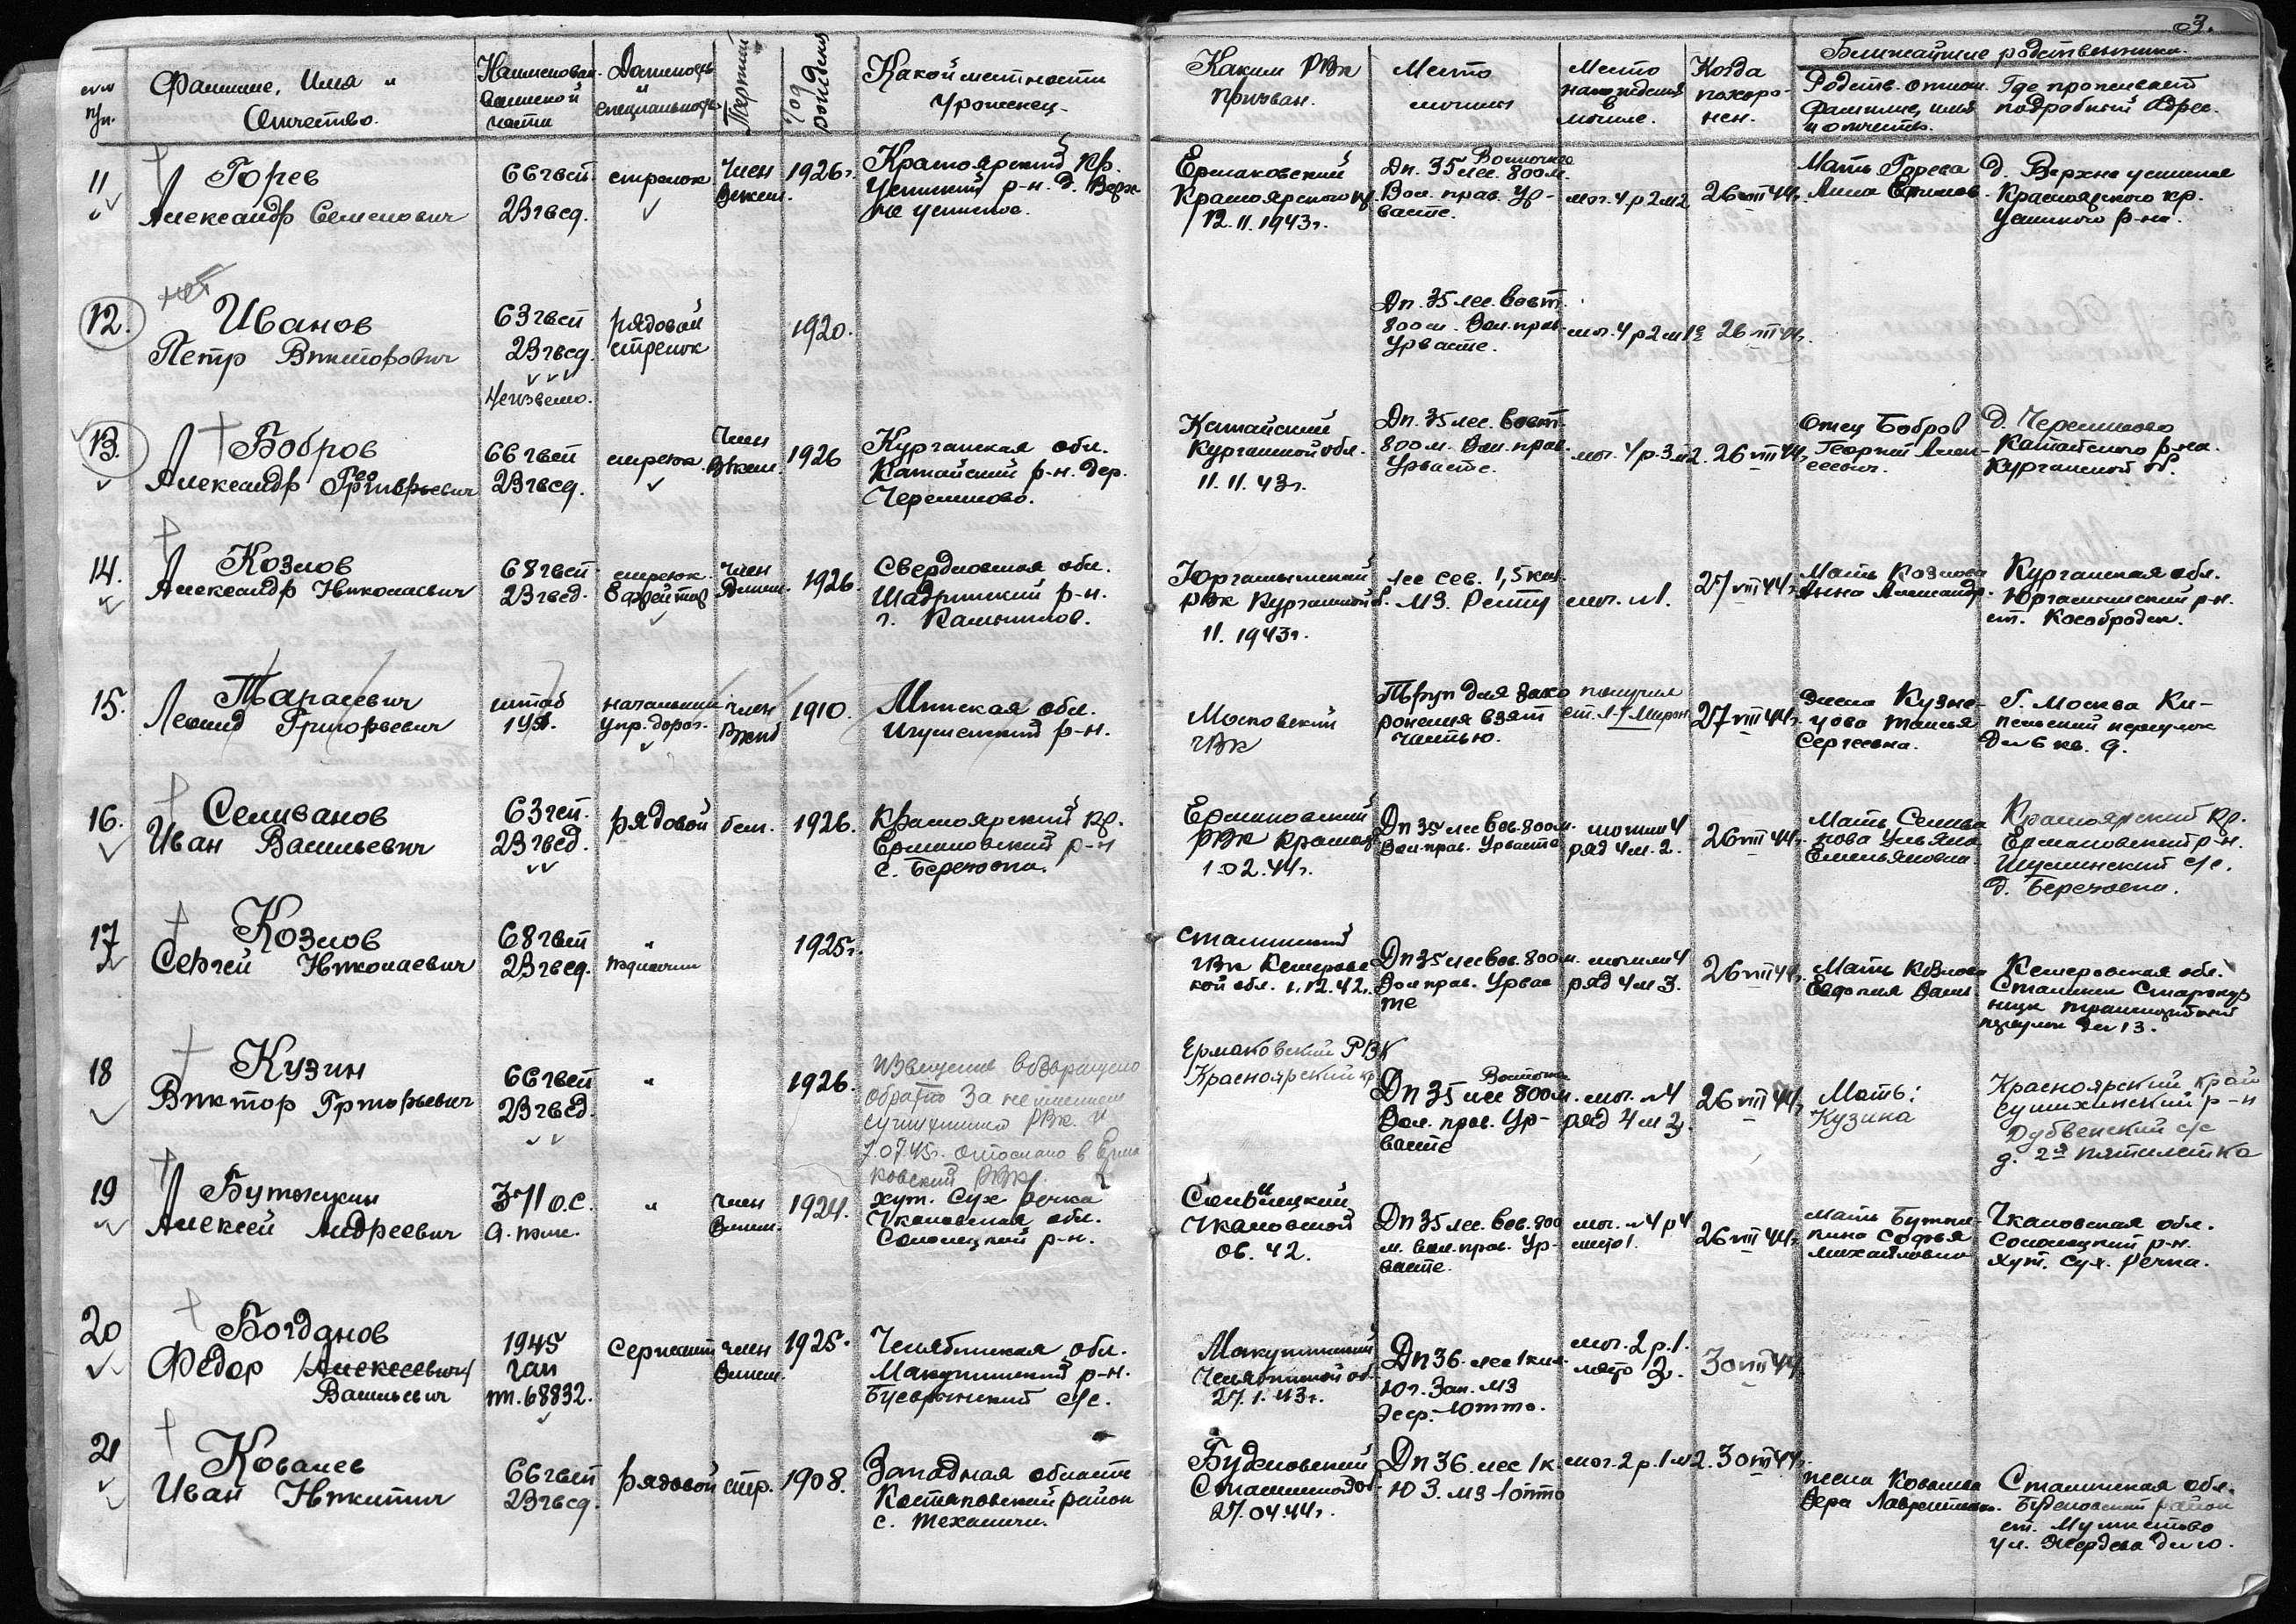 3.
№№ п/п.
Фамилие, Имя и Отчество.
Наименован. воинской части
Должность и специальность
Партий
Год рождения
Какой местности урожнец
Каким РВк призван.
Место могилы
Место нахождения в могиле.
Когда похоро-нен.
Ближайшие родственники.
Родств. отнош. Фамилие, имя и отчество.
Где проживает подробный адрес.
11
Горев
Александр Семенович
66 гвсп
23 гвсд.
стрелок
Член
Влксм.
1926г.
Красноярский Кр.
Усинский р-н. д. Верх
не усинское.
Ермаковский
Красноярского кр.
12.11.1943г.
Дп. 35 лес. Восточнее 800м.
Вол. прав. Ур-
васте.
мог. 4 р 2 м 2
26 VIII 44г.
Мать Горева
Анна
д. Верхне усинское
Красноярского кр.
Усинского р-на.
нет
12.
Иванов
Петр Викторович
63 гвсп
23 гвсд.
Неизвестно.
рядовой
стрелок
1920.
Дп. 35 лес. вост.
800м. Вол. прав.
Урвасте.
мог. 4 р 2 м 1
26 VIII 44г.
13.
Бобров
Александр Григорьевич
66 гвсп
23 гвсд.
стрелок
Член
Влксм.
1926
Курганская обл.
Катайский р-н. дер.
Черемисово.
Катайский
Курганской обл.
11.11.43г.
Дп. 35 лес. вост.
800м. Вол. прав.
Урвасте.
мог. 4 р. 3 м 2.
26 VIII 44г.
Отец Бобров
Георгий Алек-
сеевич.
д. Черемисово
Катайского р-на.
Курганской об.
14.
Козлов
Александр Николаевич
68 гвсп
23 гвсд.
стрелок
Ефрейтор
член
Влксм.
1926.
Свердловская обл.
Шадринский р-н.
г. Камышлов.
Юргамышский
РВк Курганской об.
11.1943г.
лес сев. 1,5 км.
МЗ. Репту
мог. №1.
27 VIII 44г.
Мать Козлова
Анна Александр.
Курганская обл.
Юргамышский р-н.
ст. Кособродск.
15.
Тарасевич
Леонид Григорьевич
штаб
1 УА.
начальник
упр. дорог.
член
Вкпб
1910.
Минская обл.
р-н.
Московский
гВк
Труп для захо
ронения взят
частью.
27 VIII 44г.
Жена Кузне-
цова Таисья
Сергеевна.
г. Москва Ки-
сельский переулок
Д № 6 кв. 9.
16.
Селиванов
Иван Васильевич
63 гсп.
23 гвсд.
рядовой
бсп.
1926.
Красноярский кр.
Ермаковский р-н
с. Березовка.
Ермаковский
РВк Краснояр
1.02.44г.
Дп 35 лес вос. 800м.
Вол прав. Урвасте
могил 4
ряд 4 м. 2.
26 VIII 44г.
Мать Селива
нова Ульяна
Емельяновна
Красноярский кр.
Ермаковский р-н.
Шушинский с/с.
д. Березовка.
17
Козлов
Сергей Николаевич
68 гвсп
23 гвсд.
"
1925г.
Сталинский
гВк Кемеровс
кой обл. 1.12.42г.
Дп 35 лес вос. 800м.
Вол прав. Урвас
те
могил 4
ряд 4 м 3.
26 VIII 44г.
Мать Козлова
Евдокия Васил
Кемеровская обл.
Сталинск Старокуз
нецк
переулок № 13.
18
Кузин
Виктор Григорьевич
66 гвсп
23 гвсд.
"
1926.
Извещение возвращено
обратно за неимением
РВк. и
7.07.45г. отослано в Ерма
ковский РВк.
Ермаковский РВК
Красноярский кр
Дп 35 лес Восточн. 800м.
Вол. прав. Ур-
васте
мог. №4
ряд 4 м 3.
26 VIII 44г.
Мать:
Кузина
Красноярский край
р-н
с/с
д. 2я пятилетка
19
Алексей Андреевич
371 о.с.
"
член
Влксм.
1924.
хут. Сух речка
Чкаловская обл.
Сольилецкий
Чкаловской
об. 42.
Дп 35 лес. вос. 800
м. вол. прав. Ур-
васте.
мог. №4 р 4
место 1.
26 VIII 44г.
Мать
Софья
Михайловна
Чкаловская обл.
р-н.
хут. сух. речка.
20
Богданов
Федор (Алексеевич)
Васильевич
1945
гап
пп. 68832.
Сержант
член
Влксм.
1925.
Челябинская обл.
Макушинский р-н.
с/с.
Макушинский
Челябинской об.
27.1.43г.
Дп 36. лес 1 км.
Юг. Зап. МЗ
Эсер. Ютто.
мог. 2 р. 1.
место 2.
30 VIII 44
21
Ковалев
Иван Никитич
66 гвсп
23 гвсд.
рядовой
стр.
1908.
Западная область
район
с.
Буденовский
Сталинской об.
27.04.44г.
Дп 36. лес 1 к.
Ю З. МЗ Ютто
мог. 2 р. 1 м 2.
30 VIII 44г.
жена Ковалева
Вера Лаврентьевн.
Сталинская обл.
Буденовский район
ст. Мушкетово